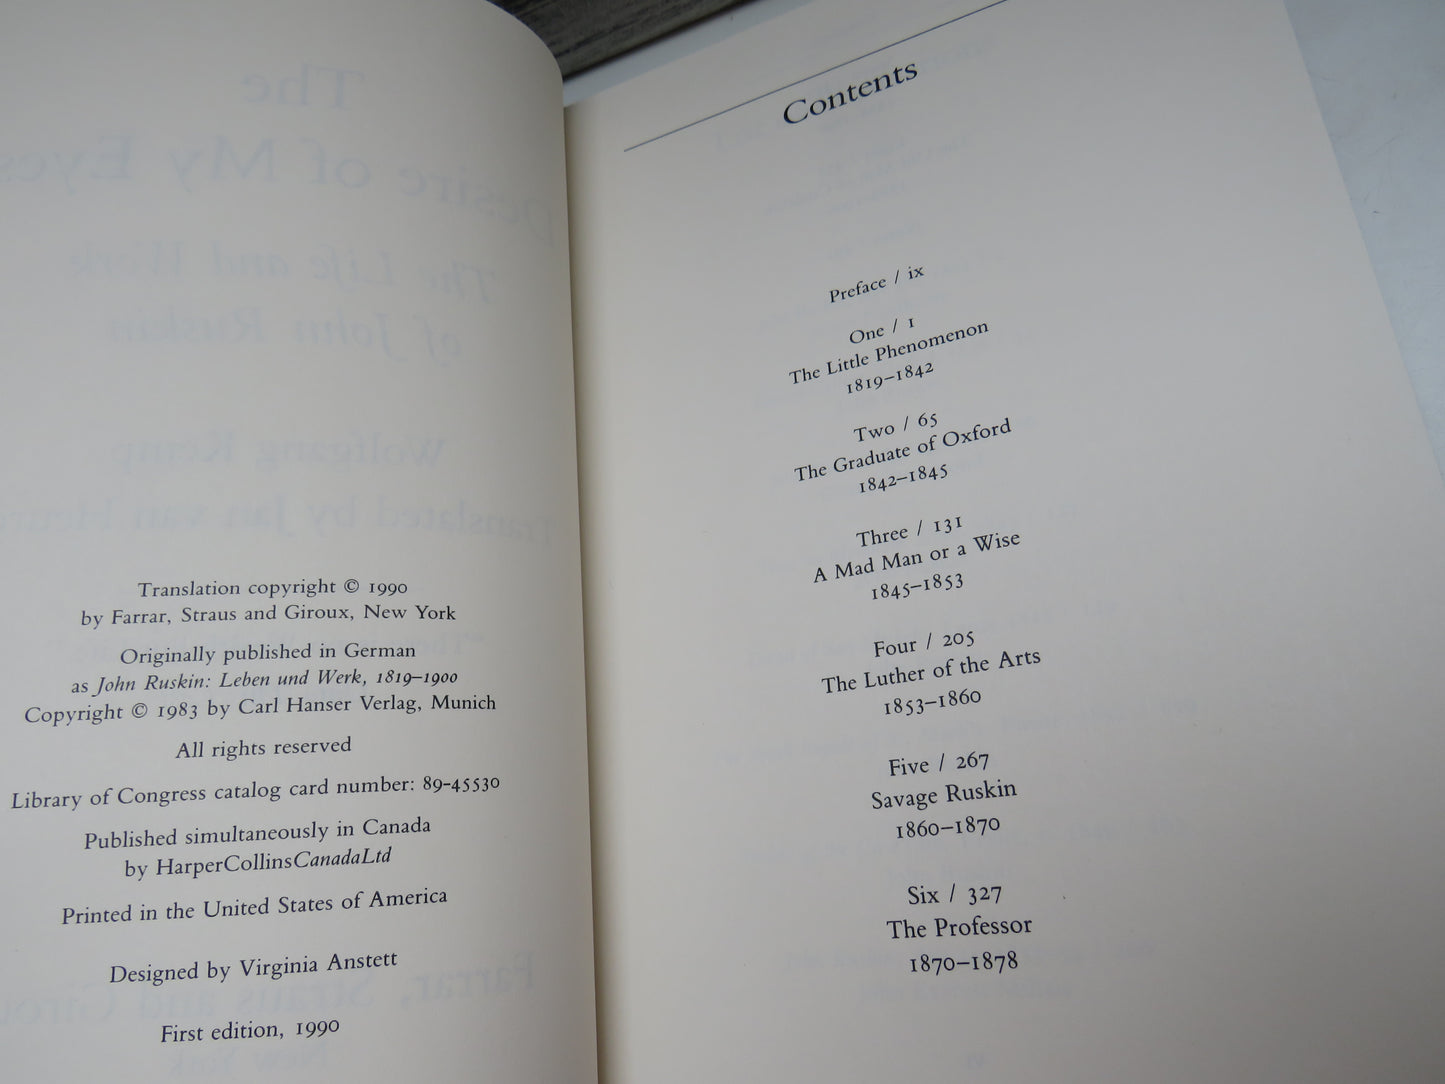 The
Desire of My Eyes
The Life and Work
of John Ruskin
Wolfgang Kemp
Translated by Jan van
Farrar, Straus and
New York
Translation copyright © 1990
by Farrar, Straus and Giroux, New York
Originally published in German
as John Ruskin: Leben und Werk, 1819–1900
Copyright © 1983 by Carl Hanser Verlag, Munich
All rights reserved
Library of Congress catalog card number: 89-45530
Published simultaneously in Canada
by HarperCollinsCanadaLtd
Printed in the United States of America
Designed by Virginia Anstett
First edition, 1990
Contents
Preface / ix
One / 1
The Little Phenomenon
1819–1842
Two / 65
The Graduate of Oxford
1842–1845
Three / 131
A Mad Man or a Wise
1845–1853
Four / 205
The Luther of the Arts
1853–1860
Five / 267
Savage Ruskin
1860–1870
Six / 327
The Professor
1870–1878